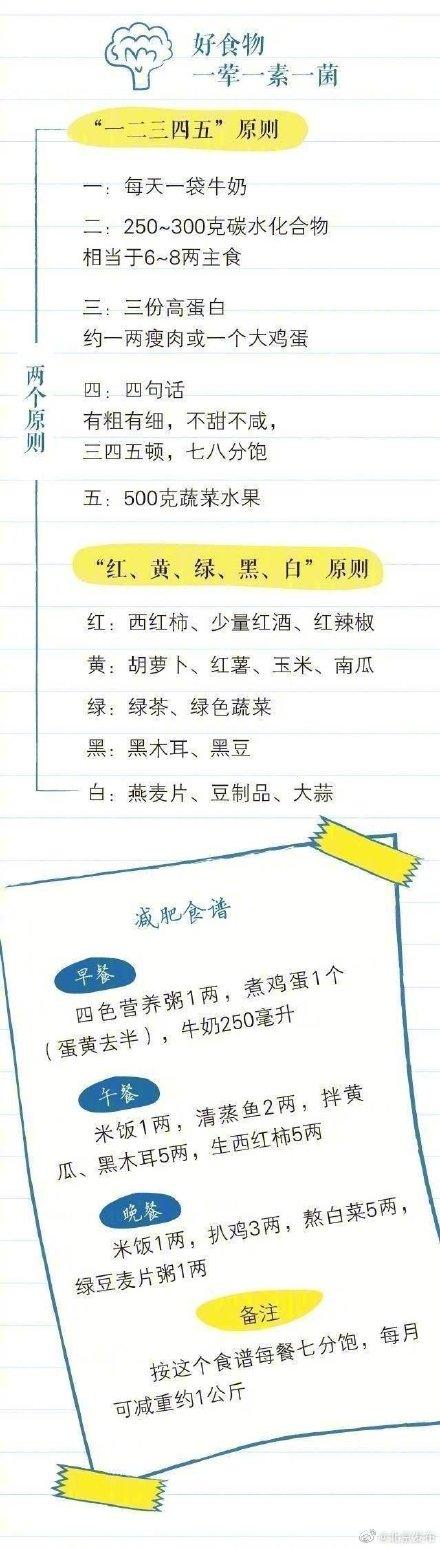 好食物
一荤一素一菌
“一二三四五”原则
一：每天一袋牛奶
二：250~300克碳水化合物
相当于6~8两主食
三：三份高蛋白
约一两瘦肉或一个大鸡蛋
两个原则
四：四句话
有粗有细，不甜不咸，
三四五顿，七八分饱
五：500克蔬菜水果
“红、黄、绿、黑、白”原则
红：西红柿、少量红酒、红辣椒
黄：胡萝卜、红薯、玉米、南瓜
绿：绿茶、绿色蔬菜
黑：黑木耳、黑豆
白：燕麦片、豆制品、大蒜
减肥食谱
早餐
四色营养粥1两，煮鸡蛋1个
（蛋黄去半），牛奶250毫升
午餐
米饭1两，清蒸鱼2两，拌黄
瓜、黑木耳5两，生西红柿5两
晚餐
米饭1两，扒鸡3两，熬白菜5两，
绿豆麦片粥1两
备注
按这个食谱每餐七分饱，每月
可减重约1公斤
@北京发布